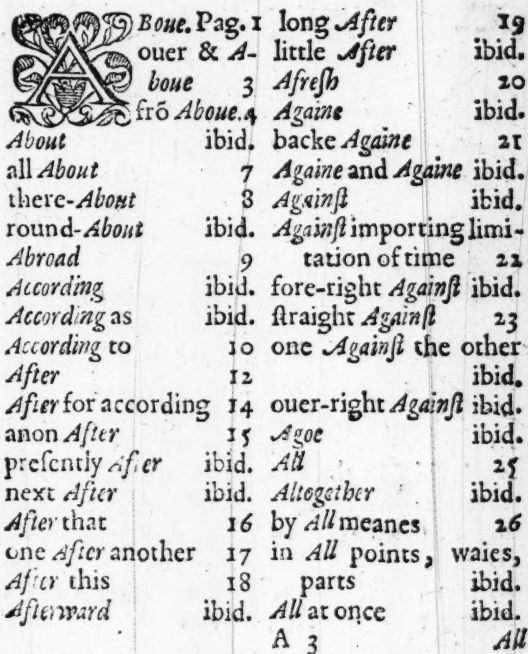 ABoue. Pag. 1
ouer & A-
boue 3
frõ Aboue. 4
About ibid.
all About 7
there-About 8
round-About ibid.
Abroad 9
According ibid.
According as ibid.
According to 10
After 12
After for according 14
anon After 15
preſently After ibid.
next After ibid.
After that 16
one After another 17
After this 18
Afterward ibid.
long After 19
little After ibid.
Afreſh 20
Againe ibid.
backe Againe 21
Againe and Againe ibid.
Againſt ibid.
Againſt importing limi-
tation of time 22
fore-right Againſt ibid.
ſtraight Againſt 23
one Againſt the other
ibid.
ouer-right Againſt ibid.
Agoe ibid.
All 25
Altogether ibid.
by All meanes 26
in All points, waies,
parts ibid.
All at once ibid.
A 3 All